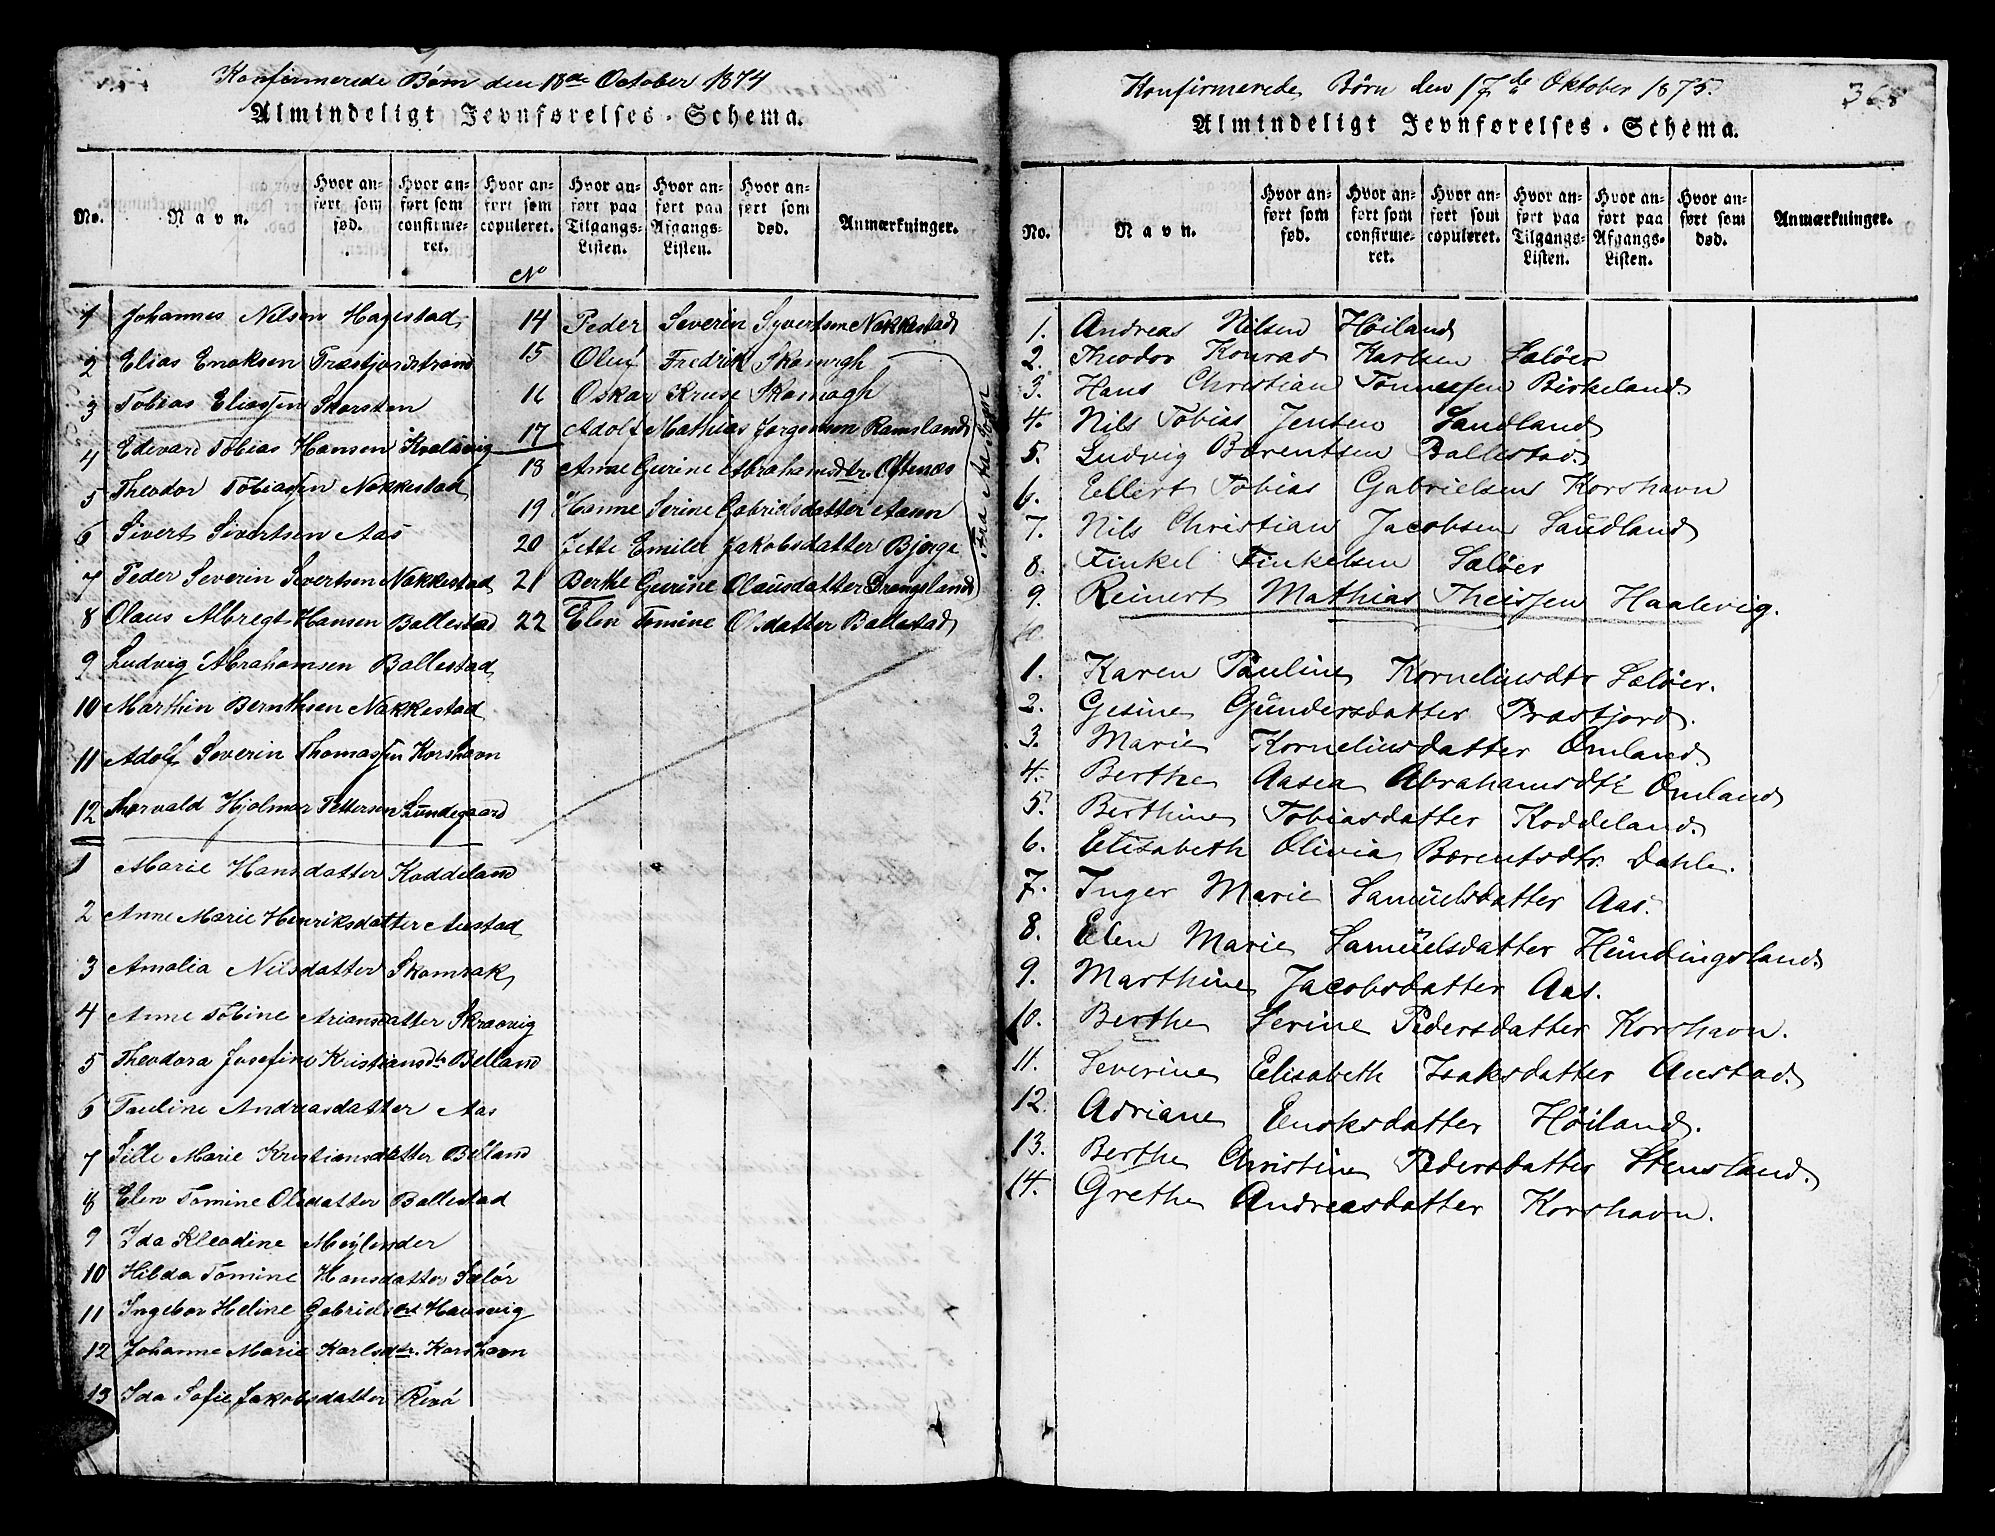 Konfirmerede Børn den 18de October 1874
Almindeligt Jevnførelses-Schema.
No.
Navn.
Hvor an-
ført som
fød.
Hvor an-
ført som
confirme-
ret.
Hvor an-
ført som
copuleret.
Hvor an-
ført paa
Tilgangs-
Listen.
Hvor an-
ført paa
Afgangs-
Listen.
Hvor an-
ført som
død.
Anmærkninger.
1 Johannes Nilsen Hagestad
2 Elias Enoksen Træfjordstrand
3 Tobias Eliassen Skorsten
4 Edevard Tobias Hansen Kvalavig
5 Theodor Tobiassen Nakkestad
6 Sivert Sivertsen Aas
7 Peder Severin Sivertsen Nakkestad
8 Olaus Albregt Hansen Ballestad
9 Ludvig Abrahamsen Ballestad
10 Marthin Bernthsen Nakkestad
11 Adolf Severin Thomassen Korshavn
12 Thorvald Hjalmar Pettersen Lundegaard
1 Marie Hansdatter Koddeland
2 Anne Marie Henriksdatter Austad
3 Amalia Nilsdatter Skamrak
4 Anne Tobine Ariansdatter Skraavig
5 Theodora Josefine Kristiansdtr Belland
6 Pauline Andreasdatter Aas
7 Sille Marie Kristiansdatter Belland
8 Elen Tomine Olsdatter Ballestad
9 Ida Kleodine Meylender
10 Hilda Tomine Hansdatter Selør
11 Ingebor Heline Gabrielsdt Hausvig
12 Johanne Marie Karlsdtr. Korshavn
13 Ida Sofie Jakobsdatter Revø
No
14 Peder Severin Syvertsen Nakkestad
15 Oluf Fredrik Skamagh
16 Oskar Kruse Skamagh
17 Adolf Mathias Jørgensen Ramsland
18 Anne Gurine Abrahamsdtr. Oftenæs
19 Hanne Serine Gabrielsdatter Aavn
20 Jette Emilie Jakobsdatter Bjerge
21 Berthe Gurine Olausdatter Drangsland
22 Elen Tomine Olsdatter Ballestad
Fra Aa Sogn
Konfirmerede Børn den 17de Oktober 1875.
368
Almindeligt Jevnførelses-Schema.
No.
Navn.
Hvor an-
ført som
fød.
Hvor an-
ført som
confirme-
ret.
Hvor an-
ført som
copuleret.
Hvor an-
ført paa
Tilgangs-
Listen.
Hvor an-
ført paa
Afgangs-
Listen.
Hvor an-
ført som
død.
Anmærkninger.
1. Andreas Nilsen Høiland
2. Theodor Konrad Karlsen Seløer
3. Hans Christian Tønnessen Birkeland.
4. Nils Tobias Jensen Sandland
5. Ludvig Bærentsen Ballestad.
6. Ellert Tobias Gabrielsen Korshavn
7. Nils Christian Jacobsen Sandland
8. Finkel Finkelsen Seløer
9. Reinert Mathias Theissen Haalevig.
10
1. Karen Pauline Korneliusdtr Seløer.
2. Gesine Gundersdatter Træfjord.
3. Marie Korneliusdatter Omland.
4. Berthe Aasea Abrahamsdtr Omland
5. Berthine Tobiasdatter Koddeland.
6. Elisabeth Olivia Bærentsdtr. Dahle.
7. Inger Marie Samuelsdatter Aas.
8. Elen Marie Samuelsdatter Hundingsland.
9. Marthine Jacobsdatter Aas.
10. Berthe Serine Pedersdatter Korshavn.
11. Severine Elisabeth Isaksdatter Austad.
12. Adriane Enoksdatter Høiland.
13. Berthe Christine Pedersdatter Stensland.
14. Grethe Andreasdatter Korshavn.